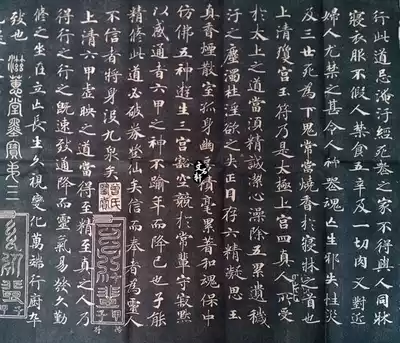 行此道忌淹汙經死喪之家不得與人同牀
寢衣服不假人禁食五辛及一切肉又對近
婦人尤禁之甚令人神喪魂亡生邪失性災
及三世死為下鬼常當燒香於寢牀之首也
上清瓊宮玉符乃是太極上宮四真人所受
於太上之道當須精誠潔心澡除五累遺穢
汙之塵濁杜淫欲之失正目存六精凝思玉
真香煙散室孤身幽房積毫累著和魂保中
仿佛五神遊生三宮豁空競於常輩守寂默
以感通者六甲之神不踰年而降已也子能
精修此道必破券登仙矣信而奉者為靈人
不信者將身沒九泉矣
上清六甲虛映之道當得至精至真之人乃
得行之行之既速致通降而靈氣易發久勤
修之坐在立亡長生久視變化萬端行廚卒
致也
滋蕙堂墨寶